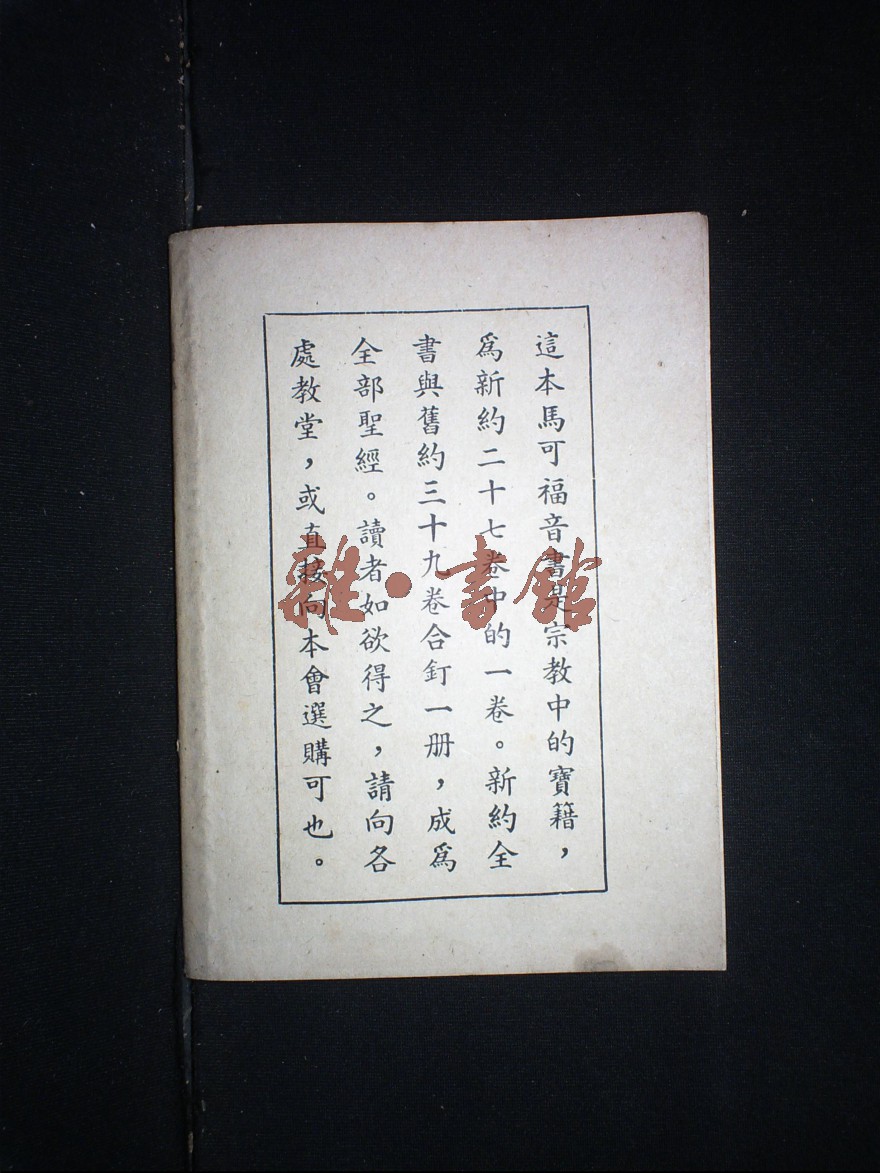 這本馬可福音書是宗教中的寶籍，
為新約二十七卷中的一卷。新約全
書與舊約三十九卷合釘一册，成為
全部聖經。讀者如欲得之，請向各
處教堂，或直接向本會選購可也。
雜·書館